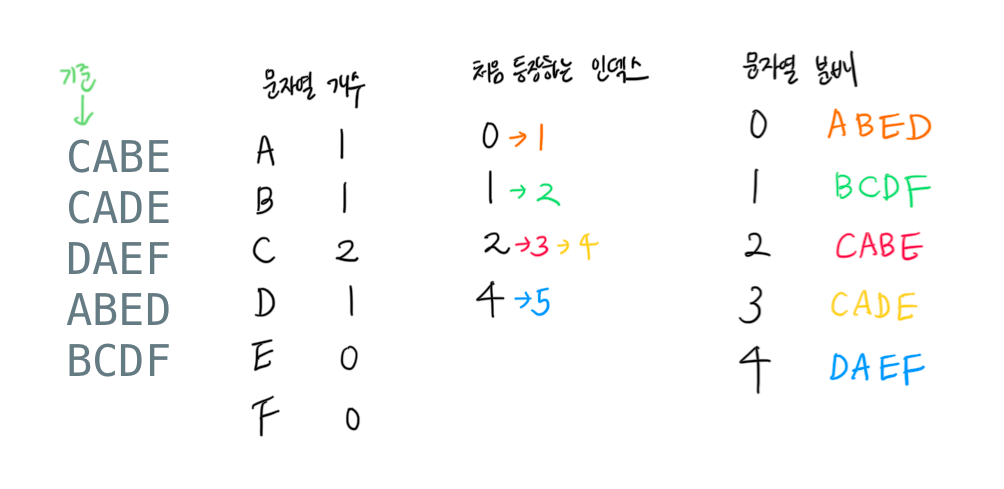 기준
↓
CABE
CADE
DAEF
ABED
BCDF
문자열 개수
A 1
B 1
C 2
D 1
E 0
F 0
처음 등장하는 인덱스
0 → 1
1 → 2
2 → 3 → 4
4 → 5
문자열 분배
0 ABED
1 BCDF
2 CABE
3 CADE
4 DAEF